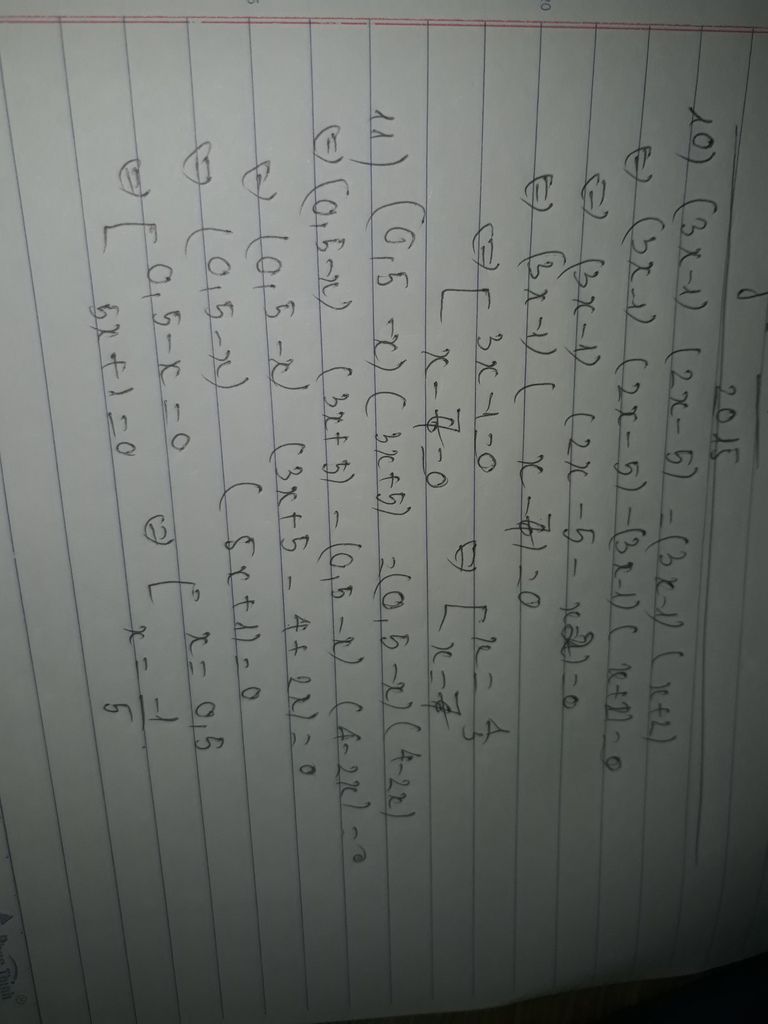 2015
10) (3x-1) (2x-5) = (3x-1) (x+2)
(=) (3x-1) (2x-5) - (3x-1) (x+2) = 0
(=) (3x-1) (2x-5 - x-2) = 0
(=) (3x-1) (x-7) = 0
(=) [ 3x-1=0 (=) [ x = 1/3
x-7=0 x=7
11) (0,5 -x) (3x+5) = (0,5-x) (4-2x)
(=) (0,5-x) (3x+5) - (0,5-x) (4-2x) = 0
(=) (0,5-x) (3x+5 - 4+2x) = 0
(=) (0,5-x) (5x+1) = 0
(=) [ 0,5-x=0 (=) [ x=0,5
5x+1=0 x = -1/5